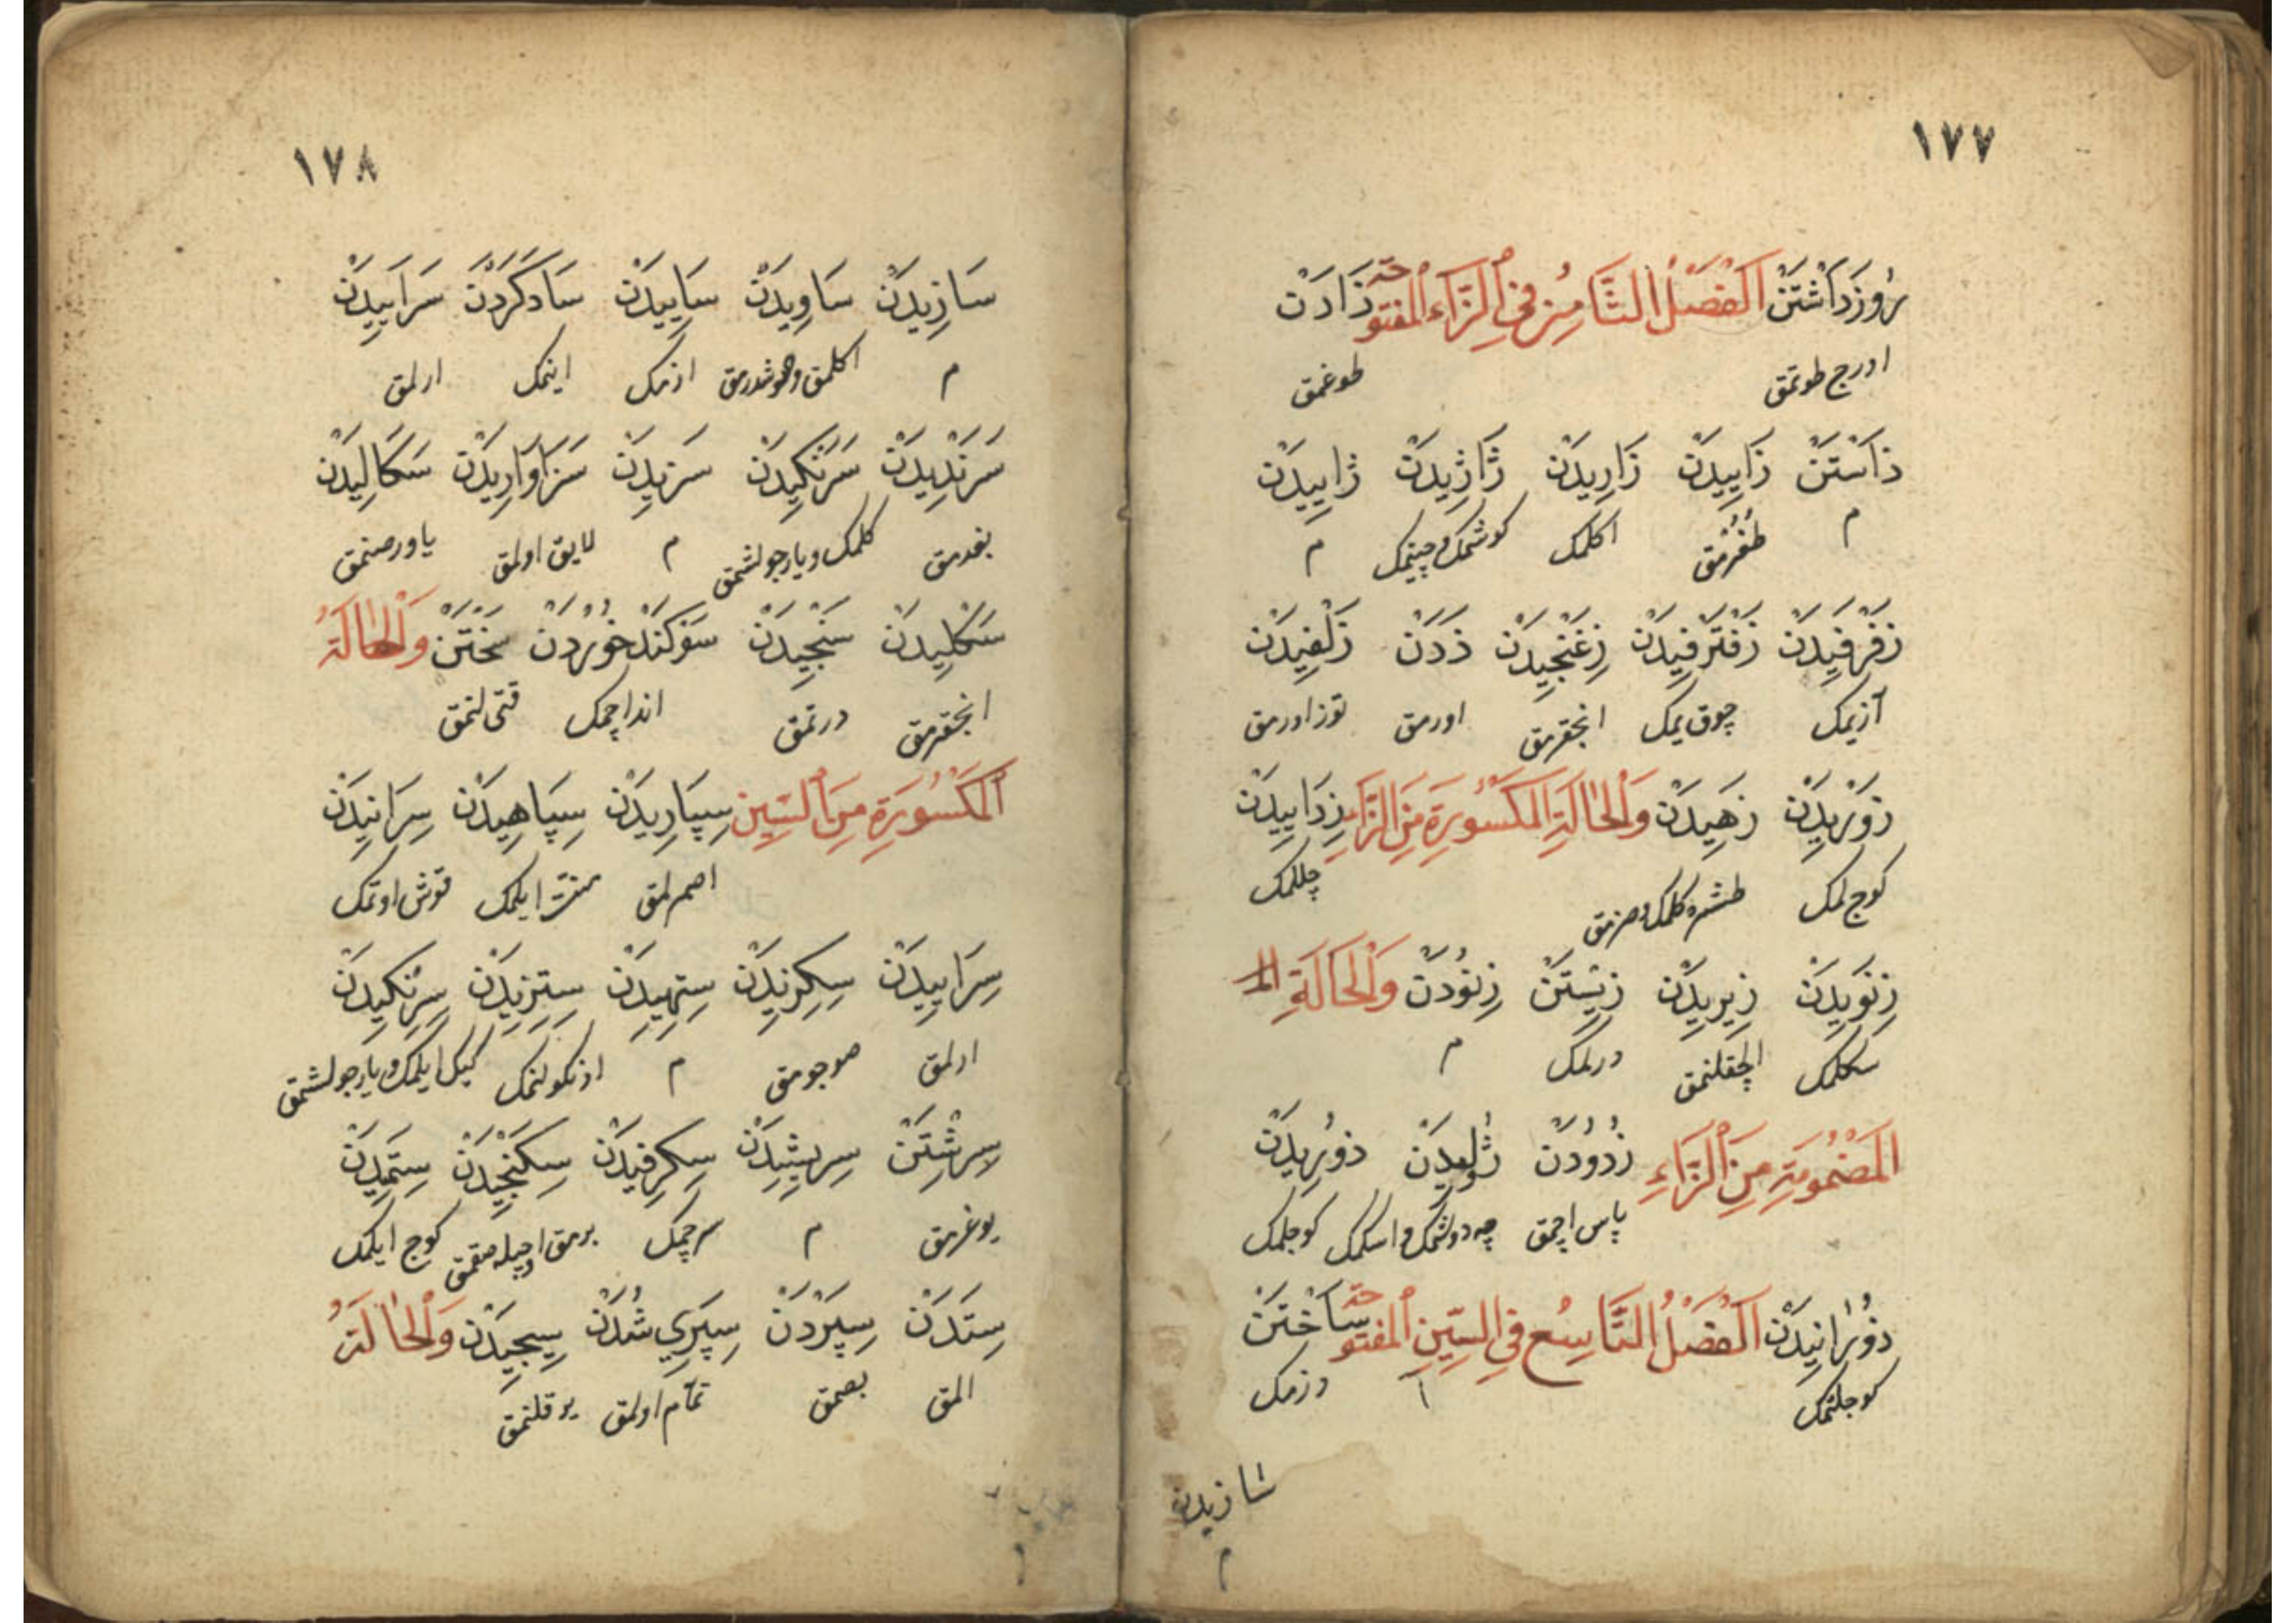 ١٧٧
رُوزَ دَاشْتَنْ اَلْفَصْلُ الثَّامِنُ فِي الزَّاءِ الْمَفْتُوحَةِ زَادَنْ
اورج طوتمق طوغمق
زَاسْتَنْ زَايِيدَنْ زَارِيدَنْ ژَاژِيدَنْ ژَايِيدَنْ
م طُغُرْمَق اكلمك كوشمك و چينمك م
زَفَرْفِيدَنْ زَفْتَرْفِيدَنْ زِغَنْجِيدَنْ زَدَنْ زَلْفِيدَنْ
آزيمك چوق يمك انجقرمق اورمق توز اورمق
زَوْرِيدَنْ زَهِيدَنْ وَالْحَالَةِ الْمَكْسُورَةِ مِنَ الزَّاءِ زِدَايِيدَنْ
كوج لمك طشره كلمك و صزمق چللمك
زِنَوِيدَنْ زِيرِيدَنْ زِيسْتَنْ زِنُودَنْ وَالْحَالَةِ الم
سكلمك الچقلنمق درلمك م
الْمَضْمُومَةِ مِنَ الزَّاءِ زُدُودَنْ ژُولِيدَنْ زُورِيدَنْ
پاس اچمق چه دولشمك و اسكمك كوجلمك
زُورَانِيدَنْ اَلْفَصْلُ التَّاسِعُ فِي السِّينِ الْمَفْتُوحَةِ سَاخْتَنْ
كوجلتمك دزمك
سازيدن
م
١٧٨
سَازِيدَنْ سَاوِيدَنْ سَايِيدَنْ سَادَكَرْدَنْ سَرَايِيدَنْ
م اكلمق و صوشدرمق ازمك اينمك ارلمق
سَرَنْدِيدَنْ سَرَنْكِيدَنْ سَزِيدَنْ سَزَاوَارِيدَنْ سَكَالِيدَنْ
بغدمق كلمك و يارجولشمق م لايق اولمق ياور صنمق
سَكْلِيدَنْ سَنْجِيدَنْ سَوْكَنْدْ خُورْدَنْ سَخْتَنْ وَالْحَالَةُ
انجقرمق درتمق اندا چمك قتى لنمق
الْمَكْسُورَةِ مِنَ السِّينِ سِپَارِيدَنْ سِپَاهِيدَنْ سِرَانِيدَنْ
اصمرلمق منت ايلمك قوش اوتمك
سِرَايِيدَنْ سِكِزِيدَنْ سِتِهِيدَنْ سِتِزِيدَنْ سِرِنْكِيدَنْ
ارلمق صوجومق م ازنكولنمك كيك ايلمك و يارجولشمق
سِرِشْتَنْ سِرِيشِيدَنْ سِكِرْفِيدَنْ سِكَنْجِيدَنْ سِتَمِيدَنْ
يوغرمق م سرچمك برمق اوجيله صقمق كوج ايلمك
سِتَدَنْ سِپَرْدَنْ سِپَرِي شُدَنْ سِيجِيدَنْ وَالْحَالَةُ
المق بصمق تمّام اولمق يوقلنمق